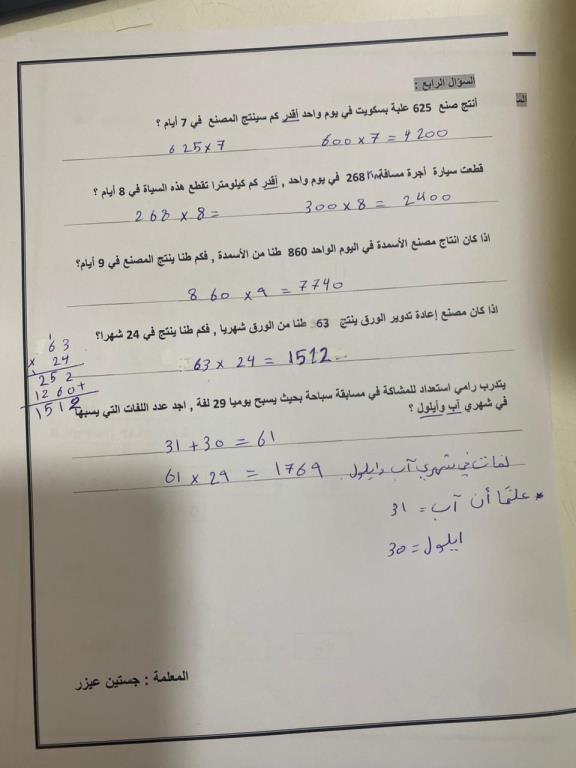 السؤال الرابع :
أنتج صنع 625 علبة بسكويت في يوم واحد أقدر كم سينتج المصنع في 7 أيام ؟
625x7 600x7=4200
قطعت سيارة أجرة مسافة 268 في يوم واحد , أقدر كم كيلومترا تقطع هذه السياة في 8 أيام ؟
268 x 8= 300x8 = 2400
اذا كان انتاج مصنع الأسمدة في اليوم الواحد 860 طنا من الأسمدة , فكم طنا ينتج المصنع في 9 أيام؟
860 x9 =7740
اذا كان مصنع إعادة تدوير الورق ينتج 63 طنا من الورق شهريا , فكم طنا ينتج في 24 شهرا؟
63 x 24 = 1512
1
63
x 24
252
1260+
1512
يتدرب رامي استعداد للمشاكة في مسابقة سباحة بحيث يسبح يوميا 29 لفة , اجد عدد اللفات التي يسبها
في شهري آب وأيلول ؟
31+30=61
61 x 29 = 1769 لفات في شهري آب وايلول.
* علمًا أن آب = 31
ايلول = 30
المعلمة : جستين عيزر